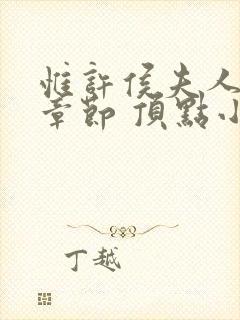 惟許侯夫人
章節 頂點小
丁越